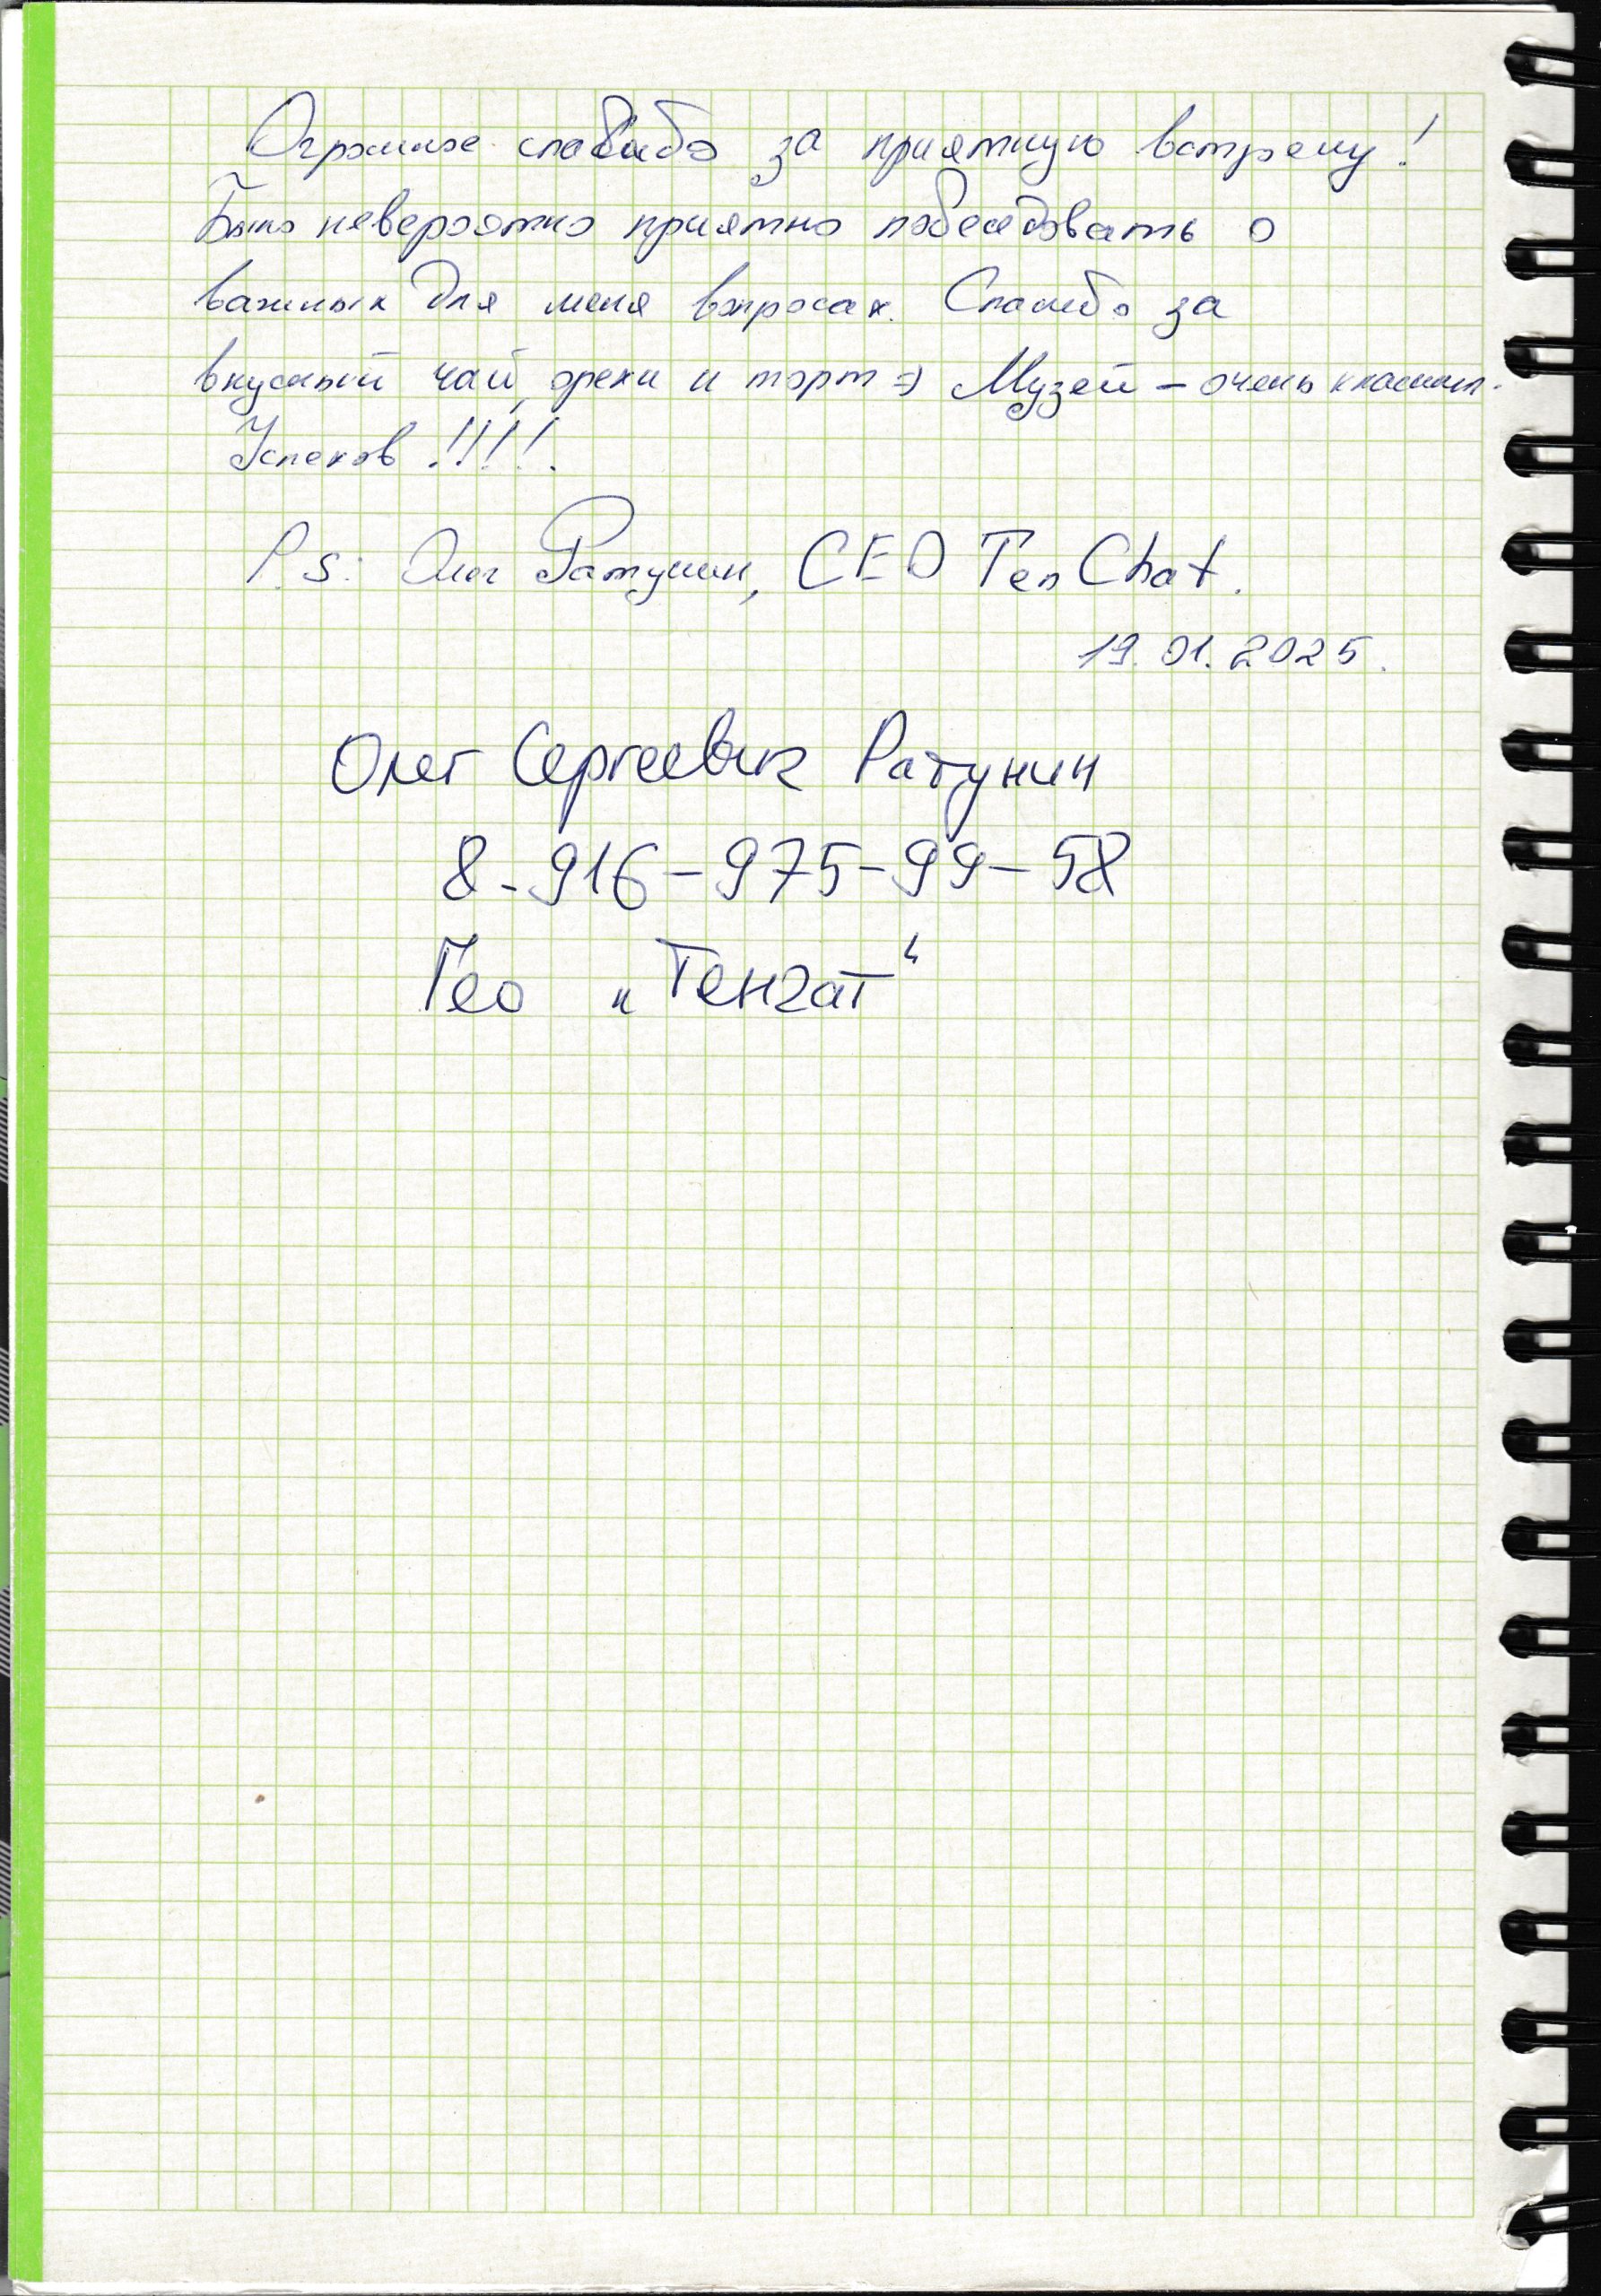 Огромное спасибо за приятную встречу!
Было невероятно приятно побеседовать о
важных для меня вопросах. Спасибо за
вкусный чай, орехи и торт =) Музей – очень классный.
Успехов !!!!!
P.S: Олег Ратунин, CEO TenChat.
19.01.2025.
Олег Сергеевич Ратунин
8-916-975-99-58
Гео „Тенчат“